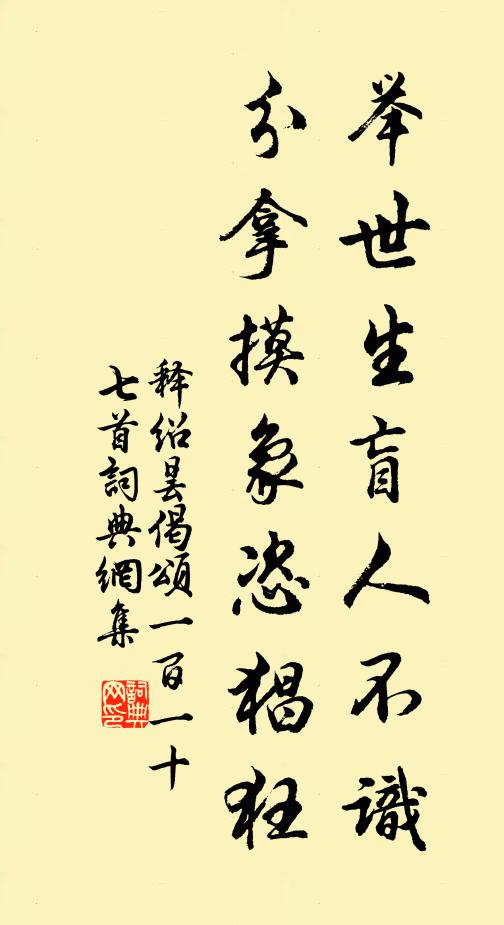 举世生盲人不識
分拿摸象恣猖狂
释绍昙偈頌一百一十
七首詞典網集
詞典网印